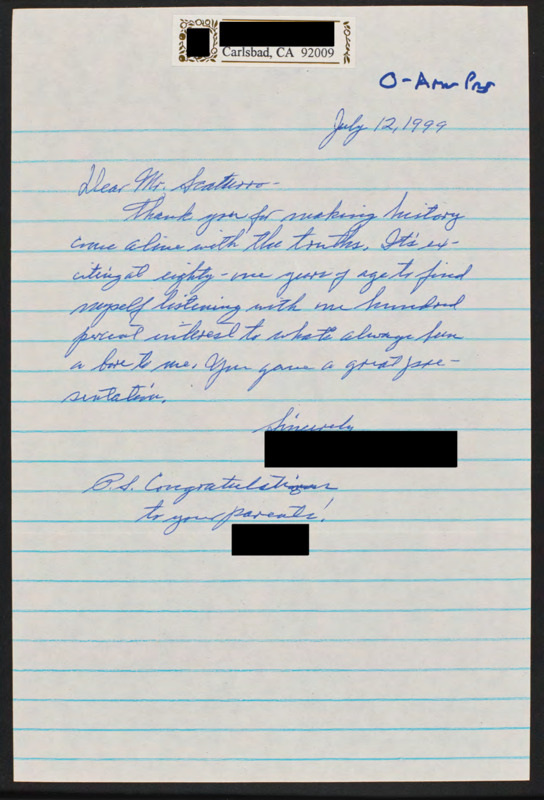 Carlsbad, CA 92009
O-Am Prs
July 12, 1999
Dear Mr. Scaturro-
Thank you for making history
come alive with the truths. It's ex-
citing at eighty-one years of age to find
myself listening with one hundred
percent interest to what's always been
a bore to me. You gave a great pre-
sentation.
Sincerely
P.S. Congratulations
to your parents!